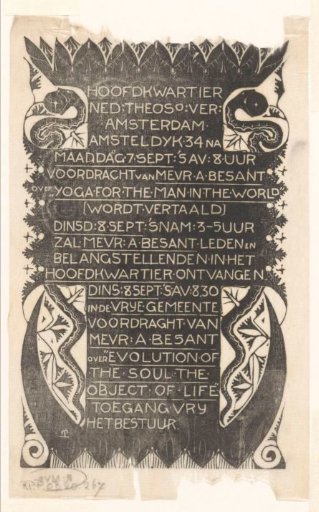 HOOFDKWARTIER
NED:THEOSO:VER:
AMSTERDAM·
AMSTELDYK·34 NA
MAANDAG 7·SEPT:'SAV:8·UUR
VOORDRACHT VAN MEVR·A·BESANT
OVER "YOGA·FOR·THE·MAN·IN·THE·WORLD
(WORDT·VERTAALD)
DINSD:8·SEPT:'SNAM:3-5UUR
ZAL·MEVR:A·BESANT·LEDEN EN
BELANGSTELLENDEN·IN·HET
HOOFDKWARTIER·ONTVANGEN
DINS:8·SEPT:'SAV·8.30
IN DE VRYE·GEMEENTE
VOORDRAGHT·VAN
MEVR:A·BESANT
OVER "EVOLUTION·OF
THE·SOUL·THE·
OBJECT·OF·LIFE
TOEGANG·VRY
HET·BESTUUR